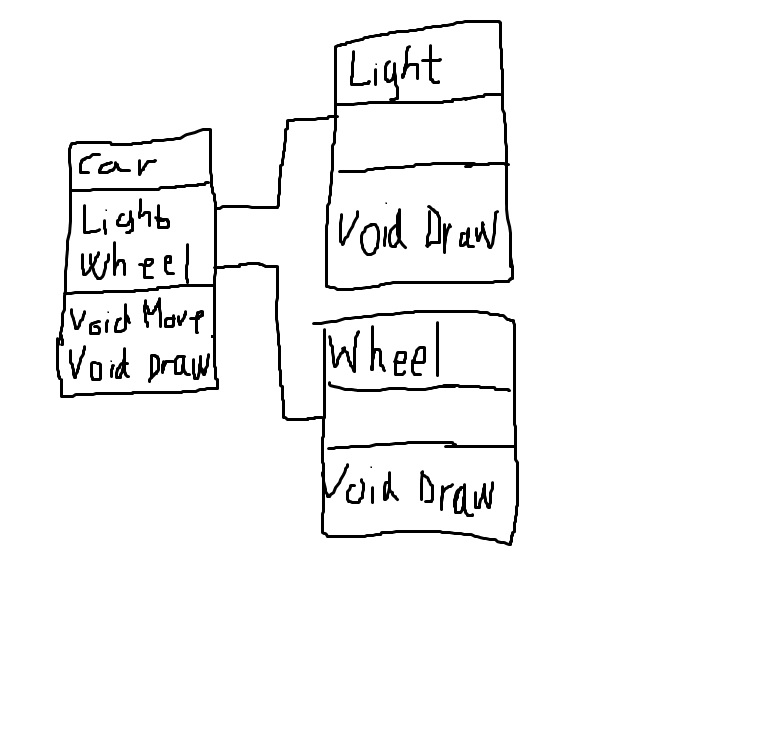 Car
Light
Wheel
Void Move
Void Draw
Light
Void Draw
Wheel
Void Draw